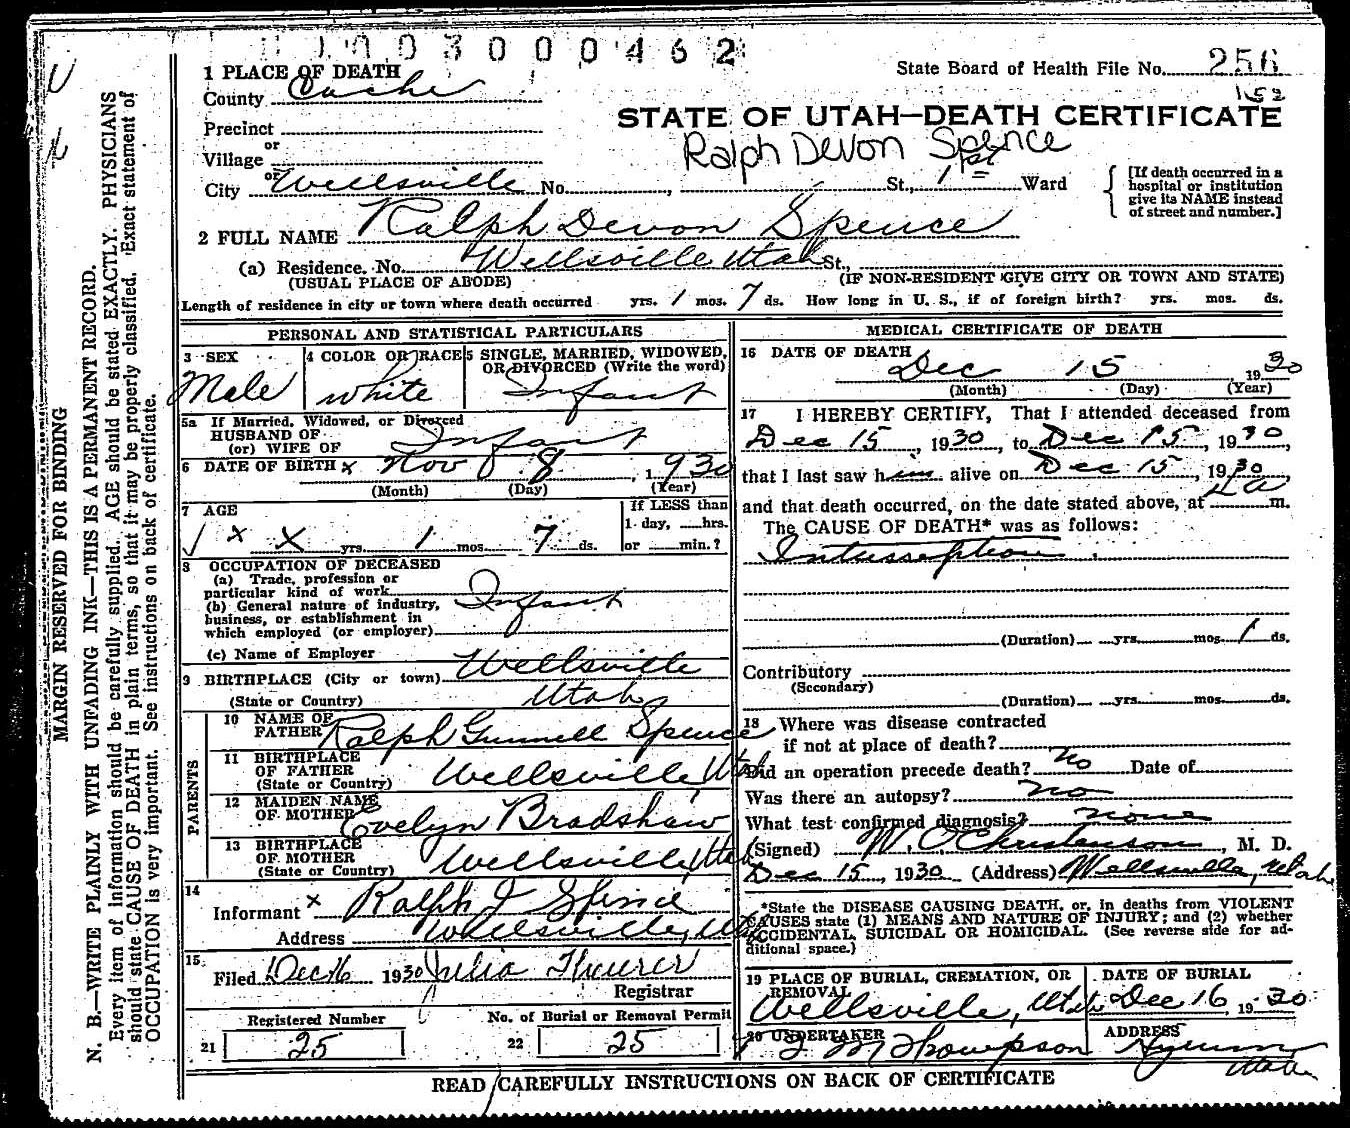 0 0 3 0 0 0 4 6 2
1 PLACE OF DEATH
State Board of Health File No. 256
County Cache
152
STATE OF UTAH—DEATH CERTIFICATE
Precinct
or
Village
Ralph Devon Spence
or
City Wellsville No. , St., 1st Ward
[If death occurred in a hospital or institution give its NAME instead of street and number.]
2 FULL NAME Ralph Devon Spence
(a) Residence. No. Wellsville Utah St.,
(USUAL PLACE OF ABODE) (IF NON-RESIDENT GIVE CITY OR TOWN AND STATE)
Length of residence in city or town where death occurred yrs. 1 mos. 7 ds. How long in U. S., if of foreign birth? yrs. mos. ds.
PERSONAL AND STATISTICAL PARTICULARS
3 SEX
Male
4 COLOR OR RACE
White
5 SINGLE, MARRIED, WIDOWED, OR DIVORCED (Write the word)
Infant
5a If Married, Widowed, or Divorced
HUSBAND OF
(or) WIFE OF Infant
6 DATE OF BIRTH x Nov 8, 1930
(Month) (Day) (Year)
7 AGE
x x yrs. 1 mos. 7 ds.
If LESS than
1 day, hrs.
or min.?
8 OCCUPATION OF DECEASED
(a) Trade, profession or
particular kind of work
(b) General nature of industry, Infant
business, or establishment in
which employed (or employer)
(c) Name of Employer
9 BIRTHPLACE (City or town) Wellsville
(State or Country) Utah
PARENTS
10 NAME OF
FATHER Ralph Gunnell Spence
11 BIRTHPLACE
OF FATHER Wellsville, Utah
(State or Country)
12 MAIDEN NAME
OF MOTHER Evelyn Bradshaw
13 BIRTHPLACE
OF MOTHER Wellsville, Utah
(State or Country)
14
Informant x Ralph Spence
Address Wellsville, Utah
15
Filed Dec 16 1930 Julia Thuurer
Registrar
Registered Number
21 25
No. of Burial or Removal Permit
22 25
MEDICAL CERTIFICATE OF DEATH
16 DATE OF DEATH
Dec 15 1930
(Month) (Day) (Year)
17 I HEREBY CERTIFY, That I attended deceased from
Dec 15, 1930, to Dec 15, 1930,
that I last saw him alive on Dec 15, 1930,
and that death occurred, on the date stated above, at a m.
The CAUSE OF DEATH* was as follows:
Intusseption
(Duration) yrs. mos. 1 ds.
Contributory
(Secondary)
(Duration) yrs. mos. ds.
18 Where was disease contracted
if not at place of death?
Did an operation precede death? No Date of
Was there an autopsy? no
What test confirmed diagnosis? none
(Signed) W. O. Christenson, M. D.
Dec 15, 1930 (Address) Wellsville, Utah
*State the DISEASE CAUSING DEATH, or, in deaths from VIOLENT
CAUSES state (1) MEANS AND NATURE OF INJURY; and (2) whether
ACCIDENTAL, SUICIDAL OR HOMICIDAL. (See reverse side for ad-
ditional space.)
19 PLACE OF BURIAL, CREMATION, OR
REMOVAL
Wellsville, Utah
DATE OF BURIAL
Dec 16, 1930
20 UNDERTAKER
J M Thompson
ADDRESS
Hyrum
Utah
READ CAREFULLY INSTRUCTIONS ON BACK OF CERTIFICATE
MARGIN RESERVED FOR BINDING
N. B.—WRITE PLAINLY WITH UNFADING INK—THIS IS A PERMANENT RECORD.
Every item of information should be carefully supplied. AGE should be stated EXACTLY. PHYSICIANS
should state CAUSE OF DEATH in plain terms, so that it may be properly classified. Exact statement of
OCCUPATION is very important. See instructions on back of certificate.